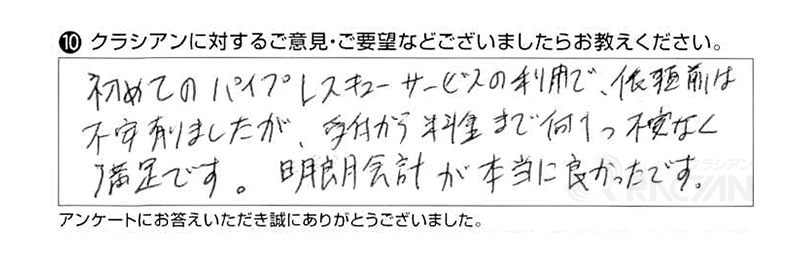 ⑩ クラシアンに対するご意見・ご要望などございましたらお教えください。
初めてのパイプレスキューサービスの利用で、依頼前は
不安有りましたが、受付から料金まで何1つ不安なく
満足です。明朗会計が本当に良かったです。
クラシアン
QRACIAN
アンケートにお答えいただき誠にありがとうございました。